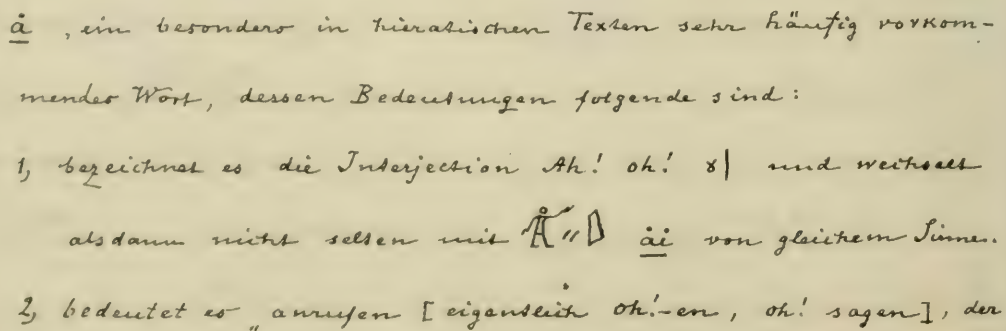 å, ein besonders in hieratischen Texten sehr häufig vorkom-
mendes Wort, dessen Bedeutungen folgende sind:
1, bezeichnet es die Interjection Ah! oh! und wechselt
alsdann nicht selten mit åi von gleichem Sinne.
2, bedeutet es „anrufen [eigentlich oh!-en, oh! sagen], der